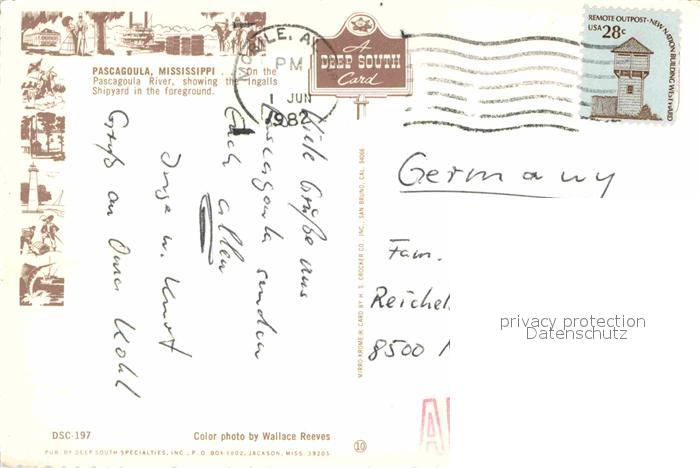 PASCAGOULA, MISSISSIPPI . . On the
Pascagoula River, showing the Ingalls
Shipyard in the foreground.
MOBILE, AL
PM
1 JUN
1982
A
DEEP SOUTH
Card
REMOTE OUTPOST · NEW NATION BUILDING WESTWARD
USA 28c
Viele Grüße aus
Pascagoula senden
Euch allen
Inge u. Kurt
Gruß an Oma Kohl
Germany
Fam.
Reichel
8500
privacy protection
Datenschutz
MIRRO-KROME ® CARD BY H. S. CROCKER CO., INC., SAN BRUNO, CAL. 94066
DSC-197
Color photo by Wallace Reeves
10
PUB. BY DEEP SOUTH SPECIALTIES, INC., P. O. BOX 1902, JACKSON, MISS. 39205